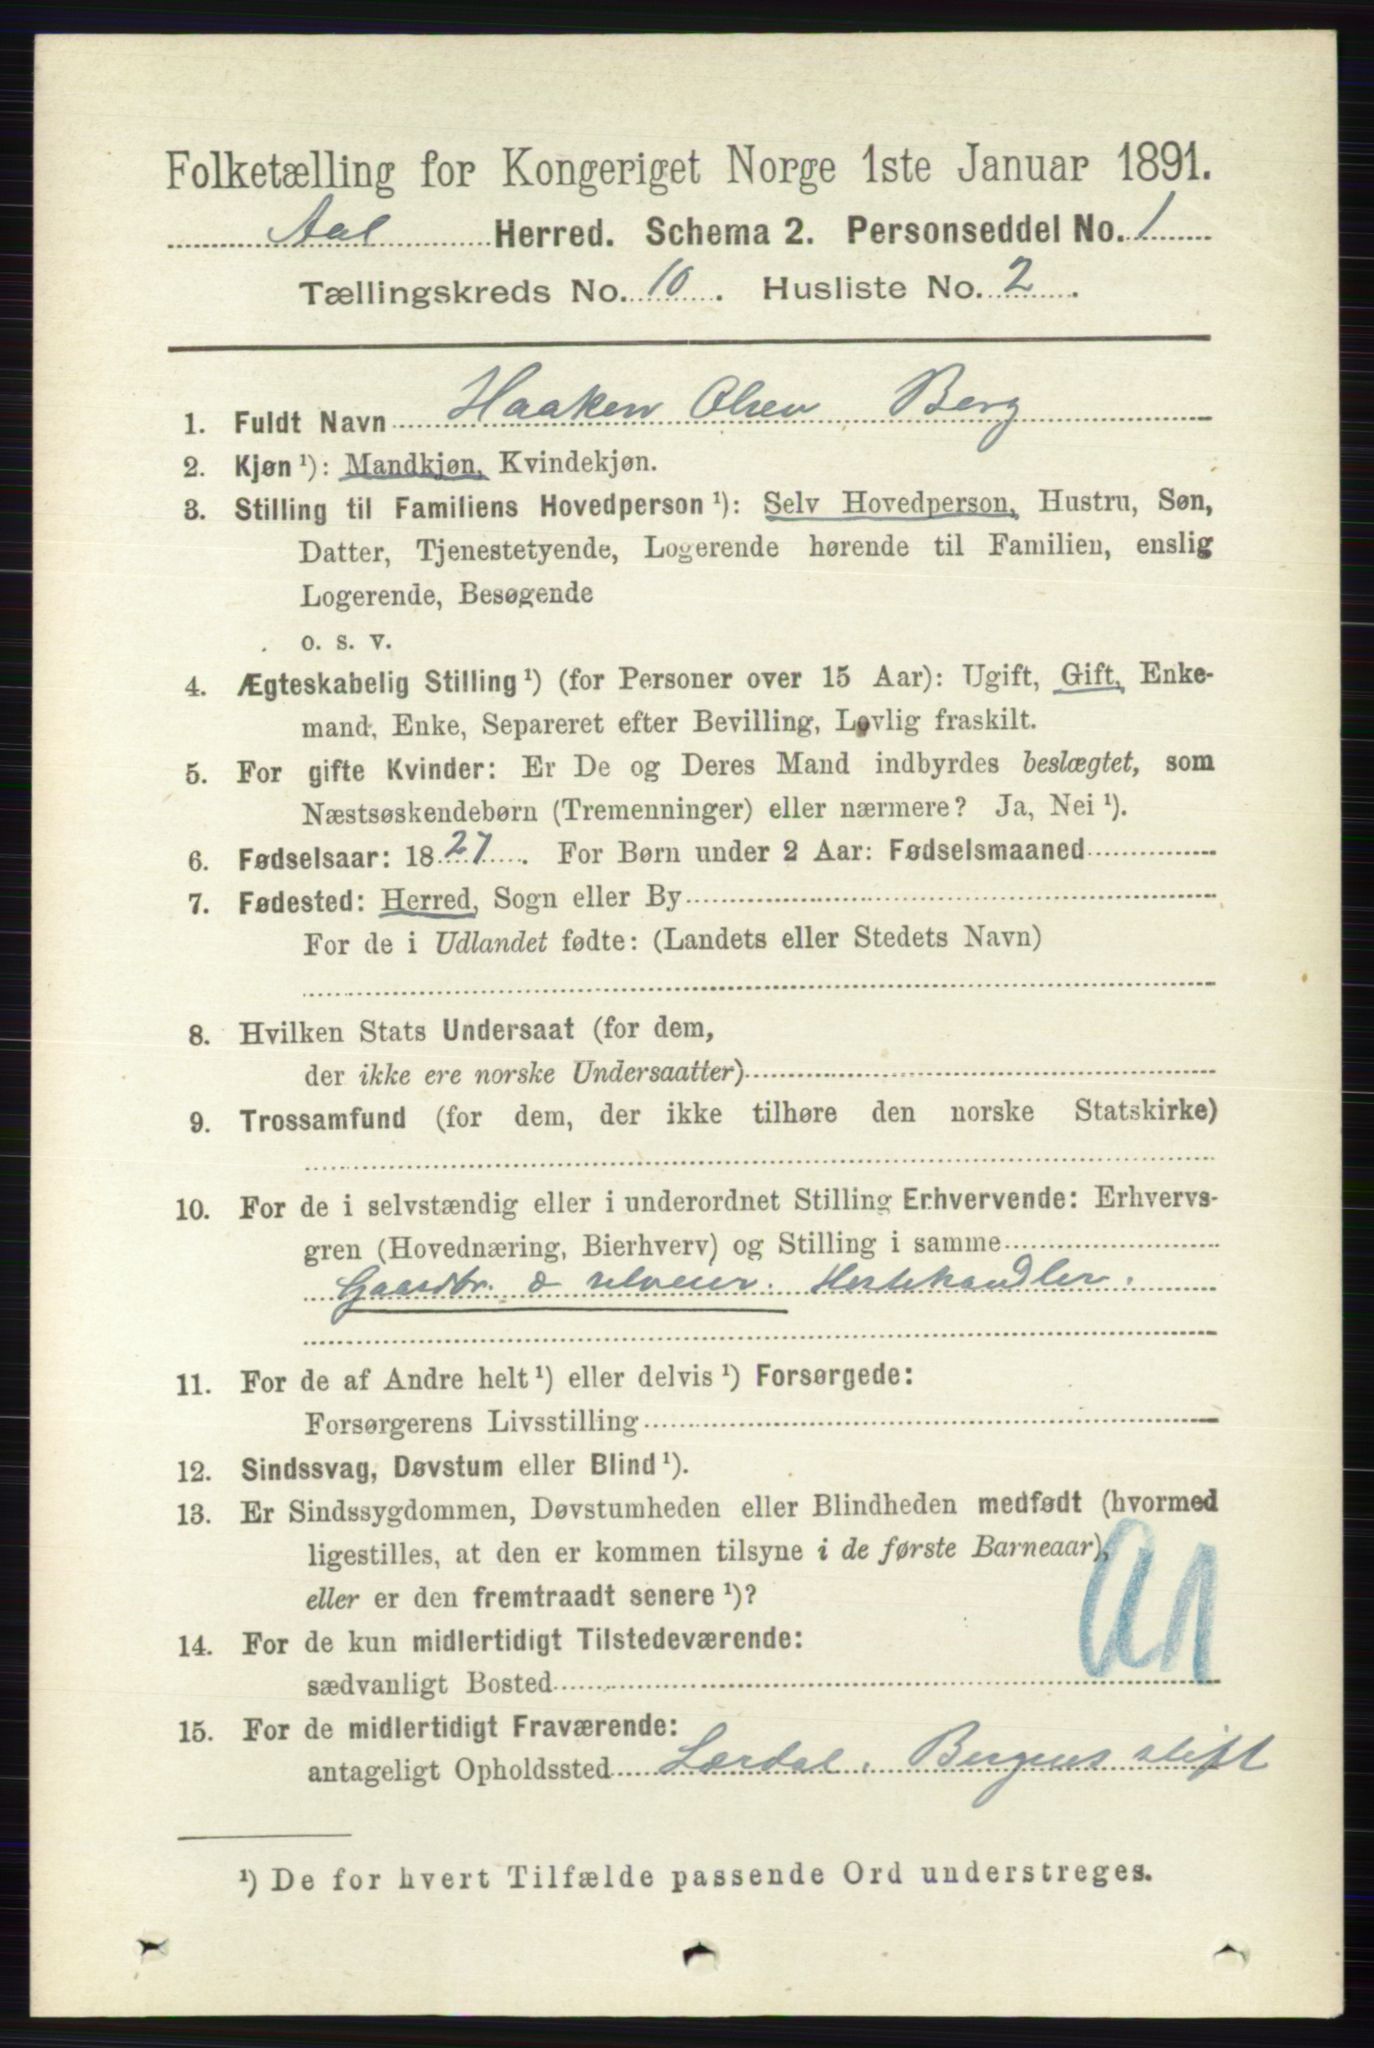 Folketælling for Kongeriget Norge 1ste Januar 1891.
Aal Herred. Schema 2. Personseddel No. 1
Tællingskreds No. 10. Husliste No. 2.
1. Fuldt Navn Haaken Olsen Berg
2. Kjøn ¹): Mandkjøn, Kvindekjøn.
3. Stilling til Familiens Hovedperson ¹): Selv Hovedperson, Hustru, Søn,
Datter, Tjenestetyende, Logerende hørende til Familien, enslig
Logerende, Besøgende
o. s. v.
4. Ægteskabelig Stilling ¹) (for Personer over 15 Aar): Ugift, Gift, Enke-
mand, Enke, Separeret efter Bevilling, Lovlig fraskilt.
5. For gifte Kvinder: Er De og Deres Mand indbyrdes beslægtet, som
Næstsøskendebørn (Tremenninger) eller nærmere? Ja, Nei ¹).
6. Fødselsaar: 1827. For Børn under 2 Aar: Fødselsmaaned
7. Fødested: Herred, Sogn eller By
For de i Udlandet fødte: (Landets eller Stedets Navn)
8. Hvilken Stats Undersaat (for dem,
der ikke ere norske Undersaatter)
9. Trossamfund (for dem, der ikke tilhøre den norske Statskirke)
10. For de i selvstændig eller i underordnet Stilling Erhvervende: Erhvervs-
gren (Hovednæring, Bierhverv) og Stilling i samme
Gaardbr. & selveier. Hestehandler.
11. For de af Andre helt ¹) eller delvis ¹) Forsørgede:
Forsørgerens Livsstilling
12. Sindssvag, Døvstum eller Blind ¹).
13. Er Sindssygdommen, Døvstumheden eller Blindheden medfødt (hvormed
ligestilles, at den er kommen tilsyne i de første Barneaar),
eller er den fremtraadt senere ¹)?
14. For de kun midlertidigt Tilstedeværende:
sædvanligt Bosted
15. For de midlertidigt Fraværende:
antageligt Opholdssted Lærdal, Bergens stift
¹) De for hvert Tilfælde passende Ord understreges.